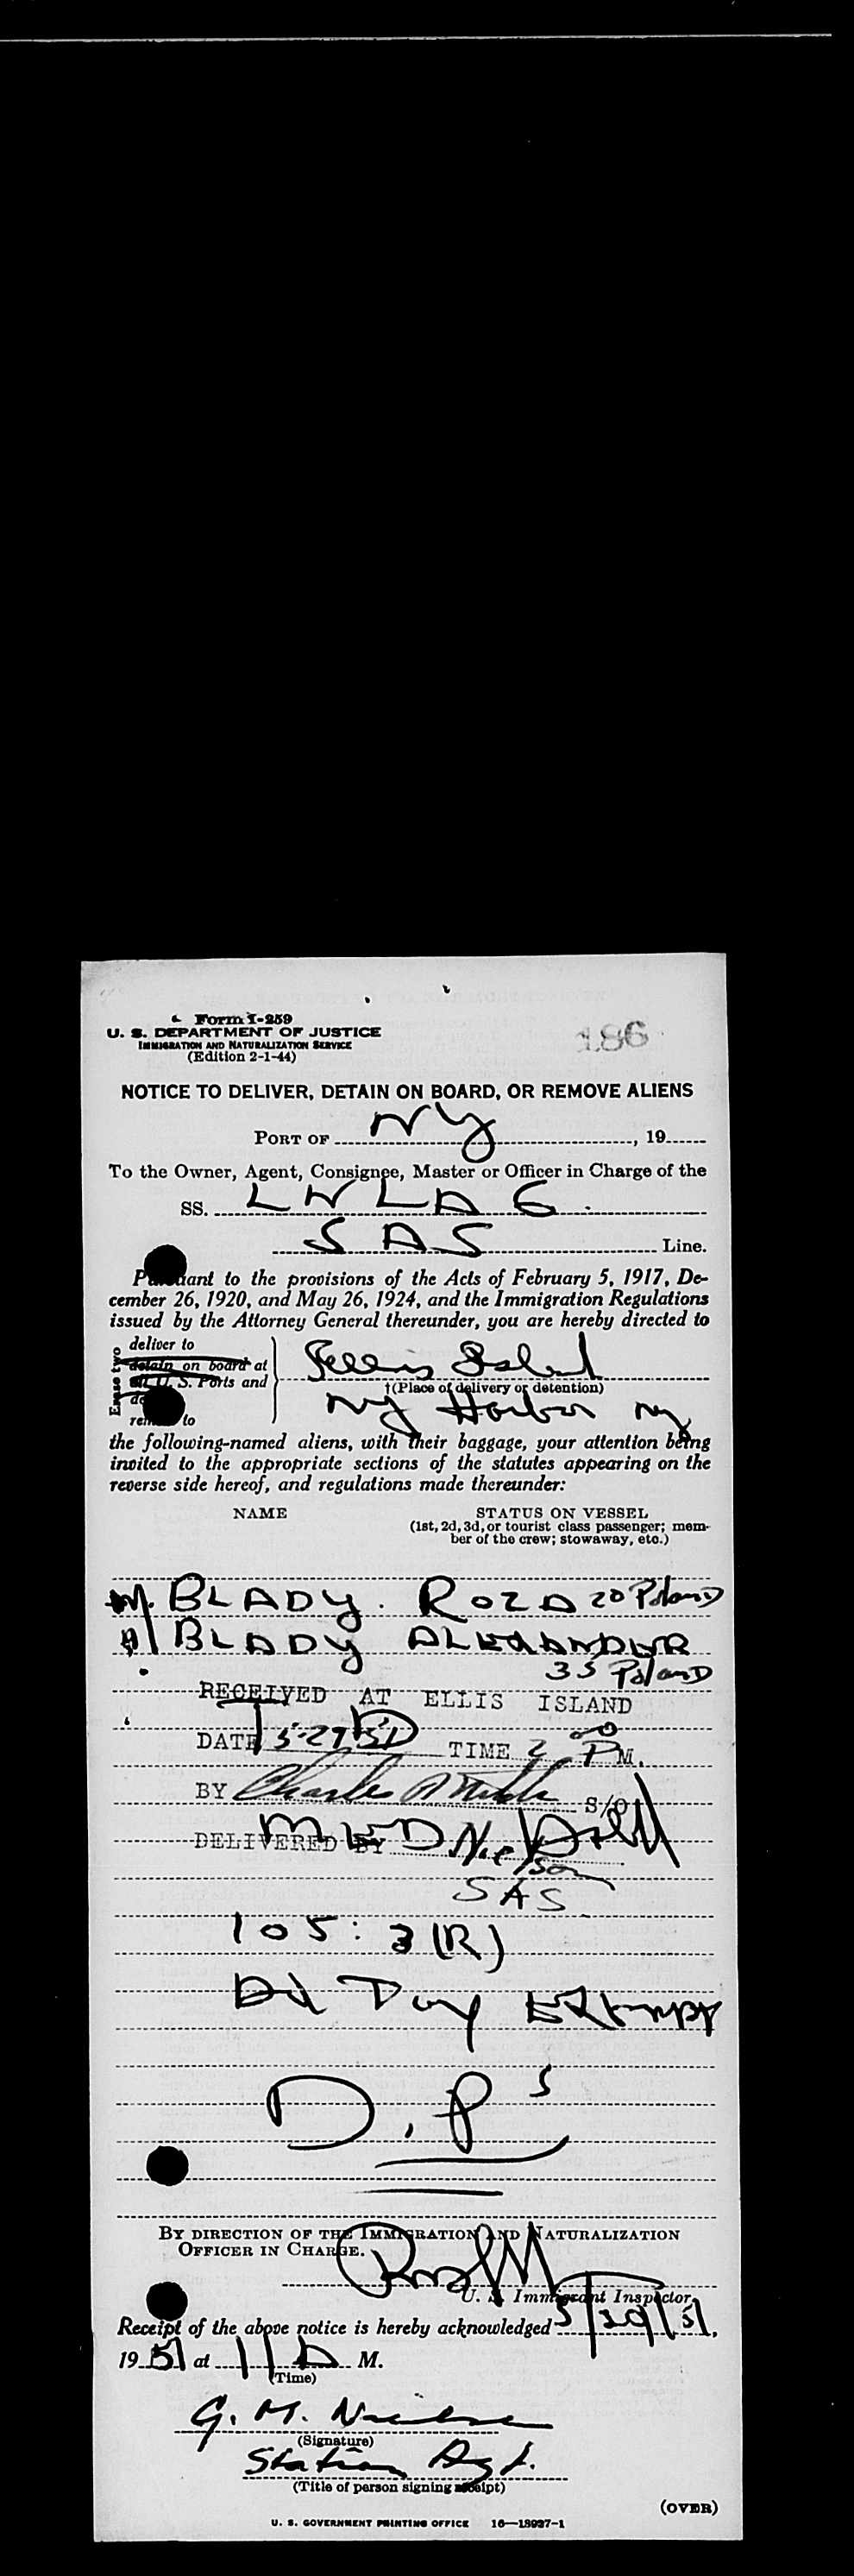 Form I-259
U. S. DEPARTMENT OF JUSTICE
IMMIGRATION AND NATURALIZATION SERVICE
(Edition 2-1-44)
186
NOTICE TO DELIVER, DETAIN ON BOARD, OR REMOVE ALIENS
PORT OF NY, 19
To the Owner, Agent, Consignee, Master or Officer in Charge of the
SS. LN LAG
SAS Line.
Pursuant to the provisions of the Acts of February 5, 1917, De-
cember 26, 1920, and May 26, 1924, and the Immigration Regulations
issued by the Attorney General thereunder, you are hereby directed to
Erase two
deliver to
detain on board at
all U. S. Ports and
remove to
Ellis Island
†(Place of delivery or detention)
NY Harbor NY
the following-named aliens, with their baggage, your attention being
invited to the appropriate sections of the statutes appearing on the
reverse side hereof, and regulations made thereunder:
NAME STATUS ON VESSEL
(1st, 2d, 3d, or tourist class passenger; mem-
ber of the crew; stowaway, etc.)
M. BLADY. ROZA 20 Poland
BLADY ALEXANDER
35 Poland
RECEIVED AT ELLIS ISLAND
DATE 5-29-51 TIME 2 00 P M.
BY Charles S/O
DELIVERED BY Nielson
MED
SAS
105: 3 (R)
D.Ps
BY DIRECTION OF THE IMMIGRATION AND NATURALIZATION
OFFICER IN CHARGE.
U. S. Immigrant Inspector
Receipt of the above notice is hereby acknowledged 5/29/51,
19 51 at 11 A M.
(Time)
G. M. Nielsen
(Signature)
Station Agt.
(Title of person signing receipt)
(OVER)
U. S. GOVERNMENT PRINTING OFFICE 16—18927-1